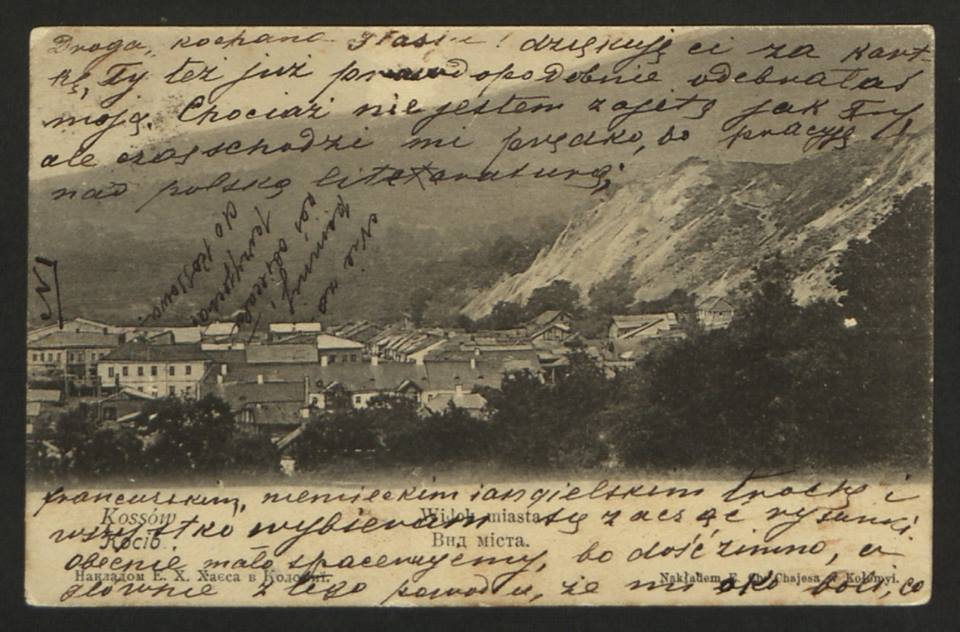 Droga, kochana Stasiu! dziękuję ci za kart-
kę, Ty też już prawdopodobnie odebrałaś
moją. Chociaż nie jestem zajętą jak Ty,
ale czas schodzi mi prędko, bo pracuję
nad polską literaturą,
Nie na
do Kossowa.
francuskim, niemieckim i angielskim trochę i
Kossów
Widok miasta.
wszystko wybieram się zacząć rysunki,
Косів.
Вид міста.
obecnie mało spacerujemy, bo dość zimno, a
Накладом Е. Х. Хаєса в Коломиї.
Nakładem E. Ch. Chajesa w Kołomyi.
głównie z tego powodu, że mi oko boli, co